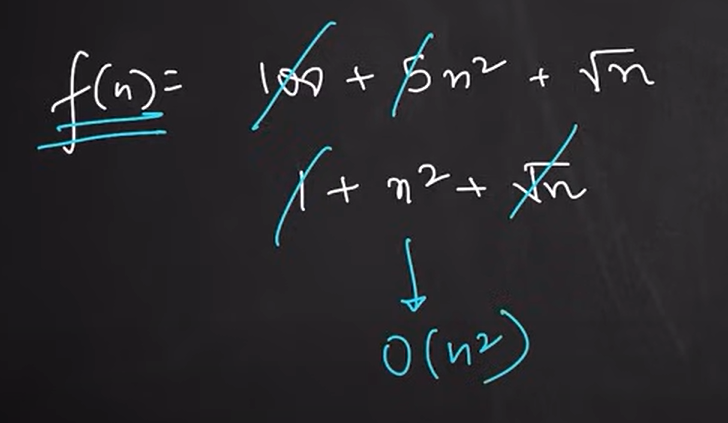 f(n) = 100 + 5n² + √n
1 + n² + √n
O(n²)